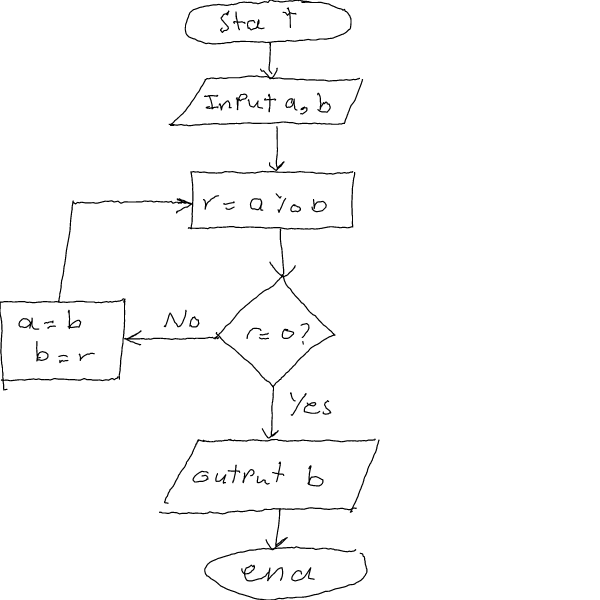 Sta t
Input a, b
r = a % b
r = 0?
No
a = b
b = r
Yes
output b
end